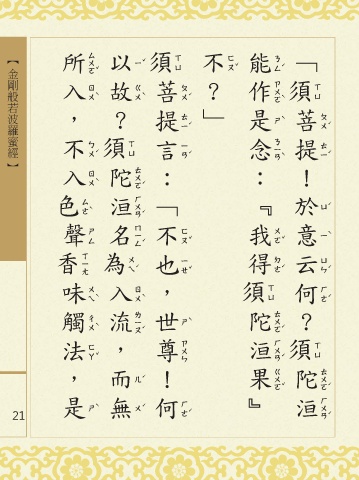 「須菩提！於意云何？須陀洹
能作是念：『我得須陀洹果』
不？」
須菩提言：「不也，世尊！何
以故？須陀洹名為入流，而無
所入，不入色聲香味觸法，是
【金剛般若波羅蜜經】
21